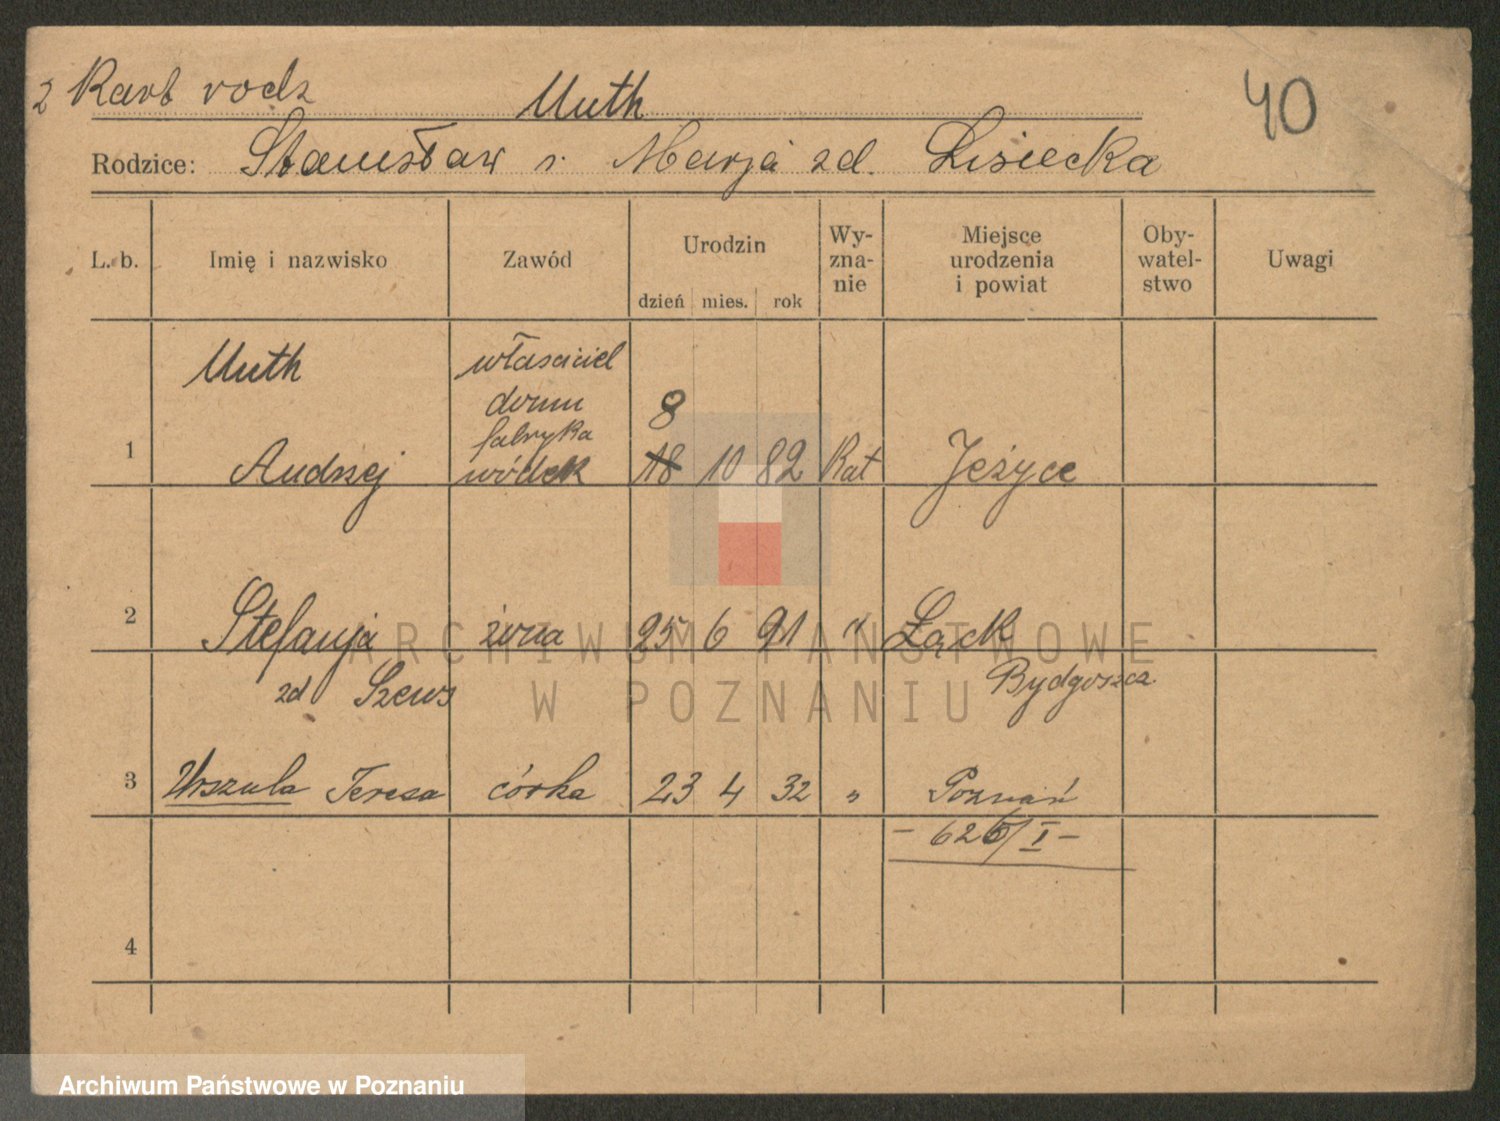 2 Kart rodz Muth 40
Rodzice: Stanisław i Marja zd. Lisiecka
L. b. Imię i nazwisko Zawód Urodzin Wy-zna-nie Miejsce urodzenia i powiat Oby-watel-stwo Uwagi
dzień mies. rok
Muth właściciel
domu 8
fabryka
1 Andrzej wódek 18 10 82 Kat Jeżyce
2 Stefanja żona 25 6 91 " Łąck
zd Szews Bydgoszcz
3 Urszula Teresa córka 23 4 32 " Poznań
- 626/I -
4
ARCHIWUM PAŃSTWOWE
W POZNANIU
Archiwum Państwowe w Poznaniu